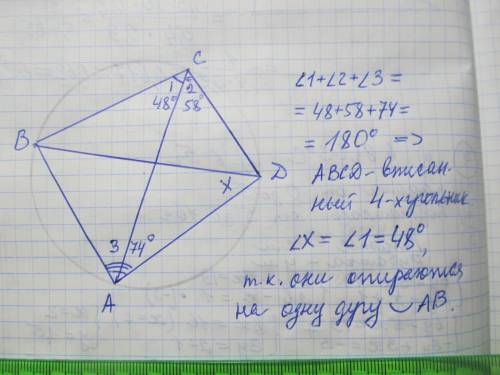 C
1 2
48° 58°
B
X D
3 74°
A
∠1+∠2+∠3=
=48+58+74=
=180° =>
ABCD-вписан-
ный 4-хугольник
∠X=∠1=48°,
т.к. они опираются
на одну дугу ◡AB.